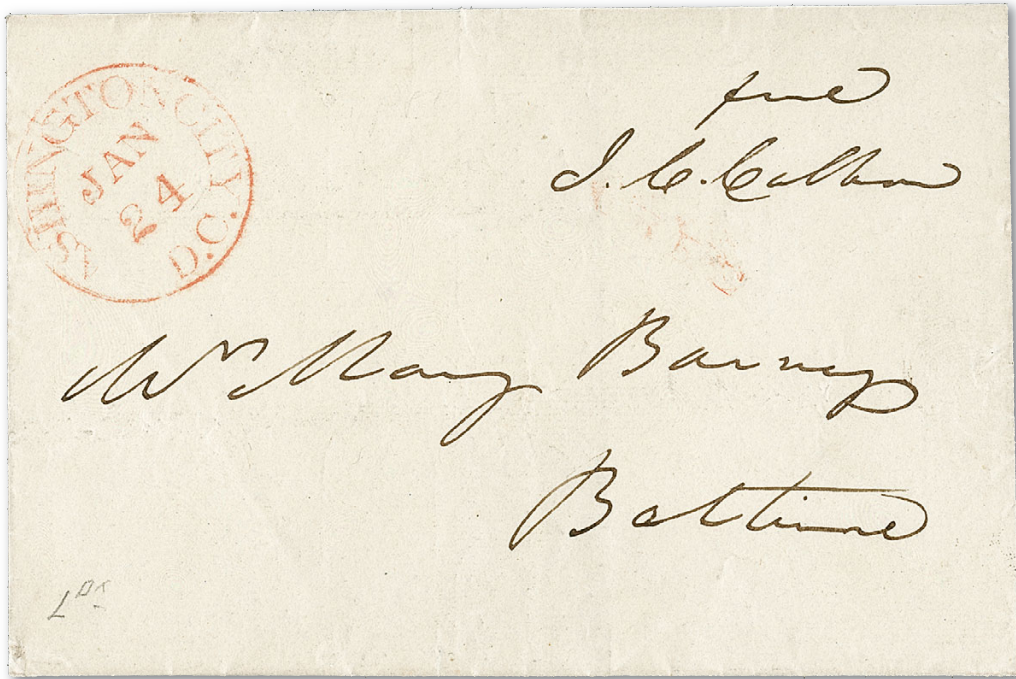 WASHINGTON CITY
D.C.
JAN
24
free
J. C. Calhoun
Mrs Mary Barney
Baltimore